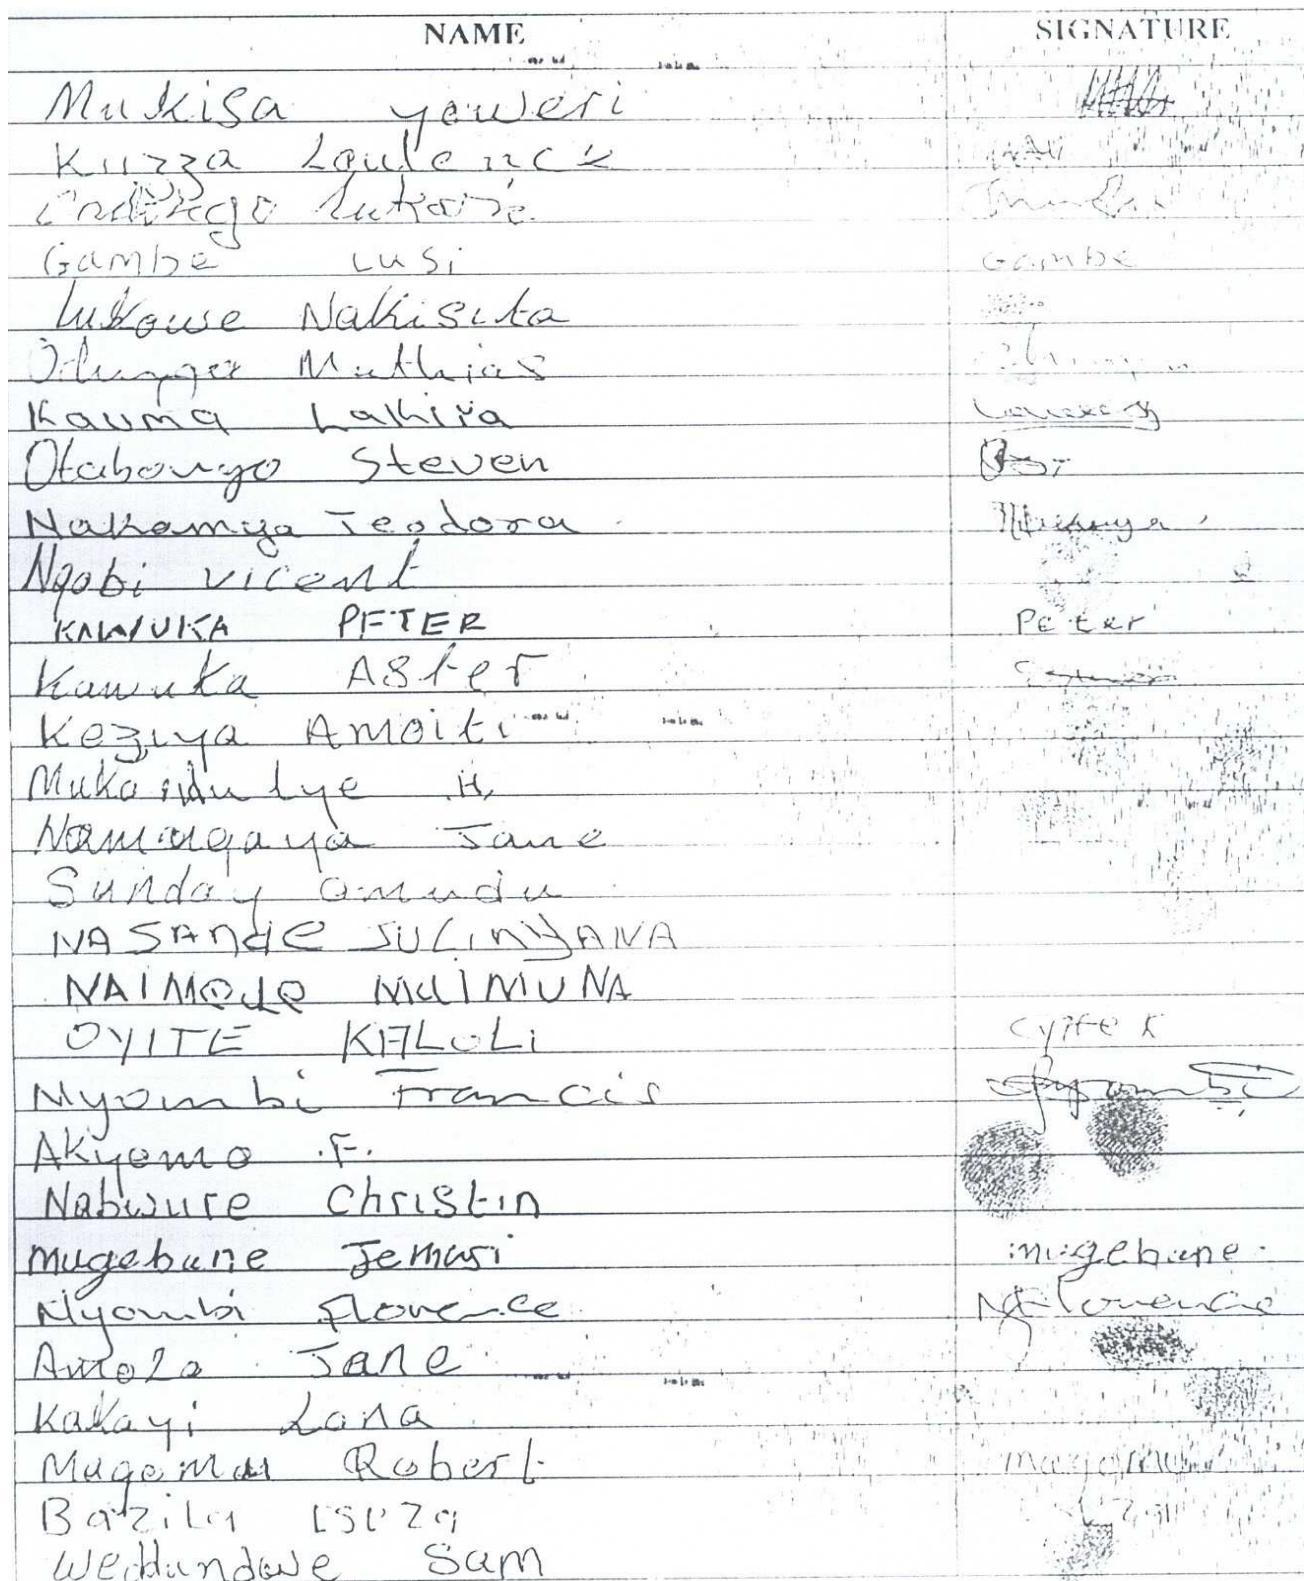 NAME SIGNATURE
Mukisa yoweri
Kizza Laulenck
Gambe Lusi Gambe
Lukowe Nakisita
Mathias
Kauma Lakira
Otabongo Steven
Nakamya Teodora
Ngobi vicent
KAWUKA PETER Peter
Kawuka ASter
Keziya Amoiti
Mukandulye H.
Namugaya Jane
Sunday Omudu
NASANde JULinYANA
NAIMOLO MUIMUNA
OYITE KALOLi Oyite K
Nyombi Francis
Akyemo .F.
Nabwure Christin
mugebune Jemusi mugebune
Nyombi Florence Florence
Amolo Jane
Kakayi Lona
Mugomu Robert mugomu
Bazila
Sam